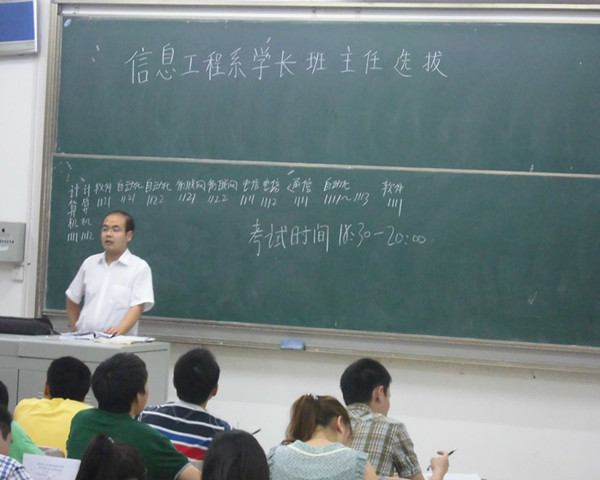 信息工程系学长班主任选拔
计算机1111 计算机1112 软件1121 自动化1121 自动化1122 物联网1121 物联网1122 电信1111 电信1112 通信1111 自动化1111~1113 软件1111
考试时间 18:30-20:00